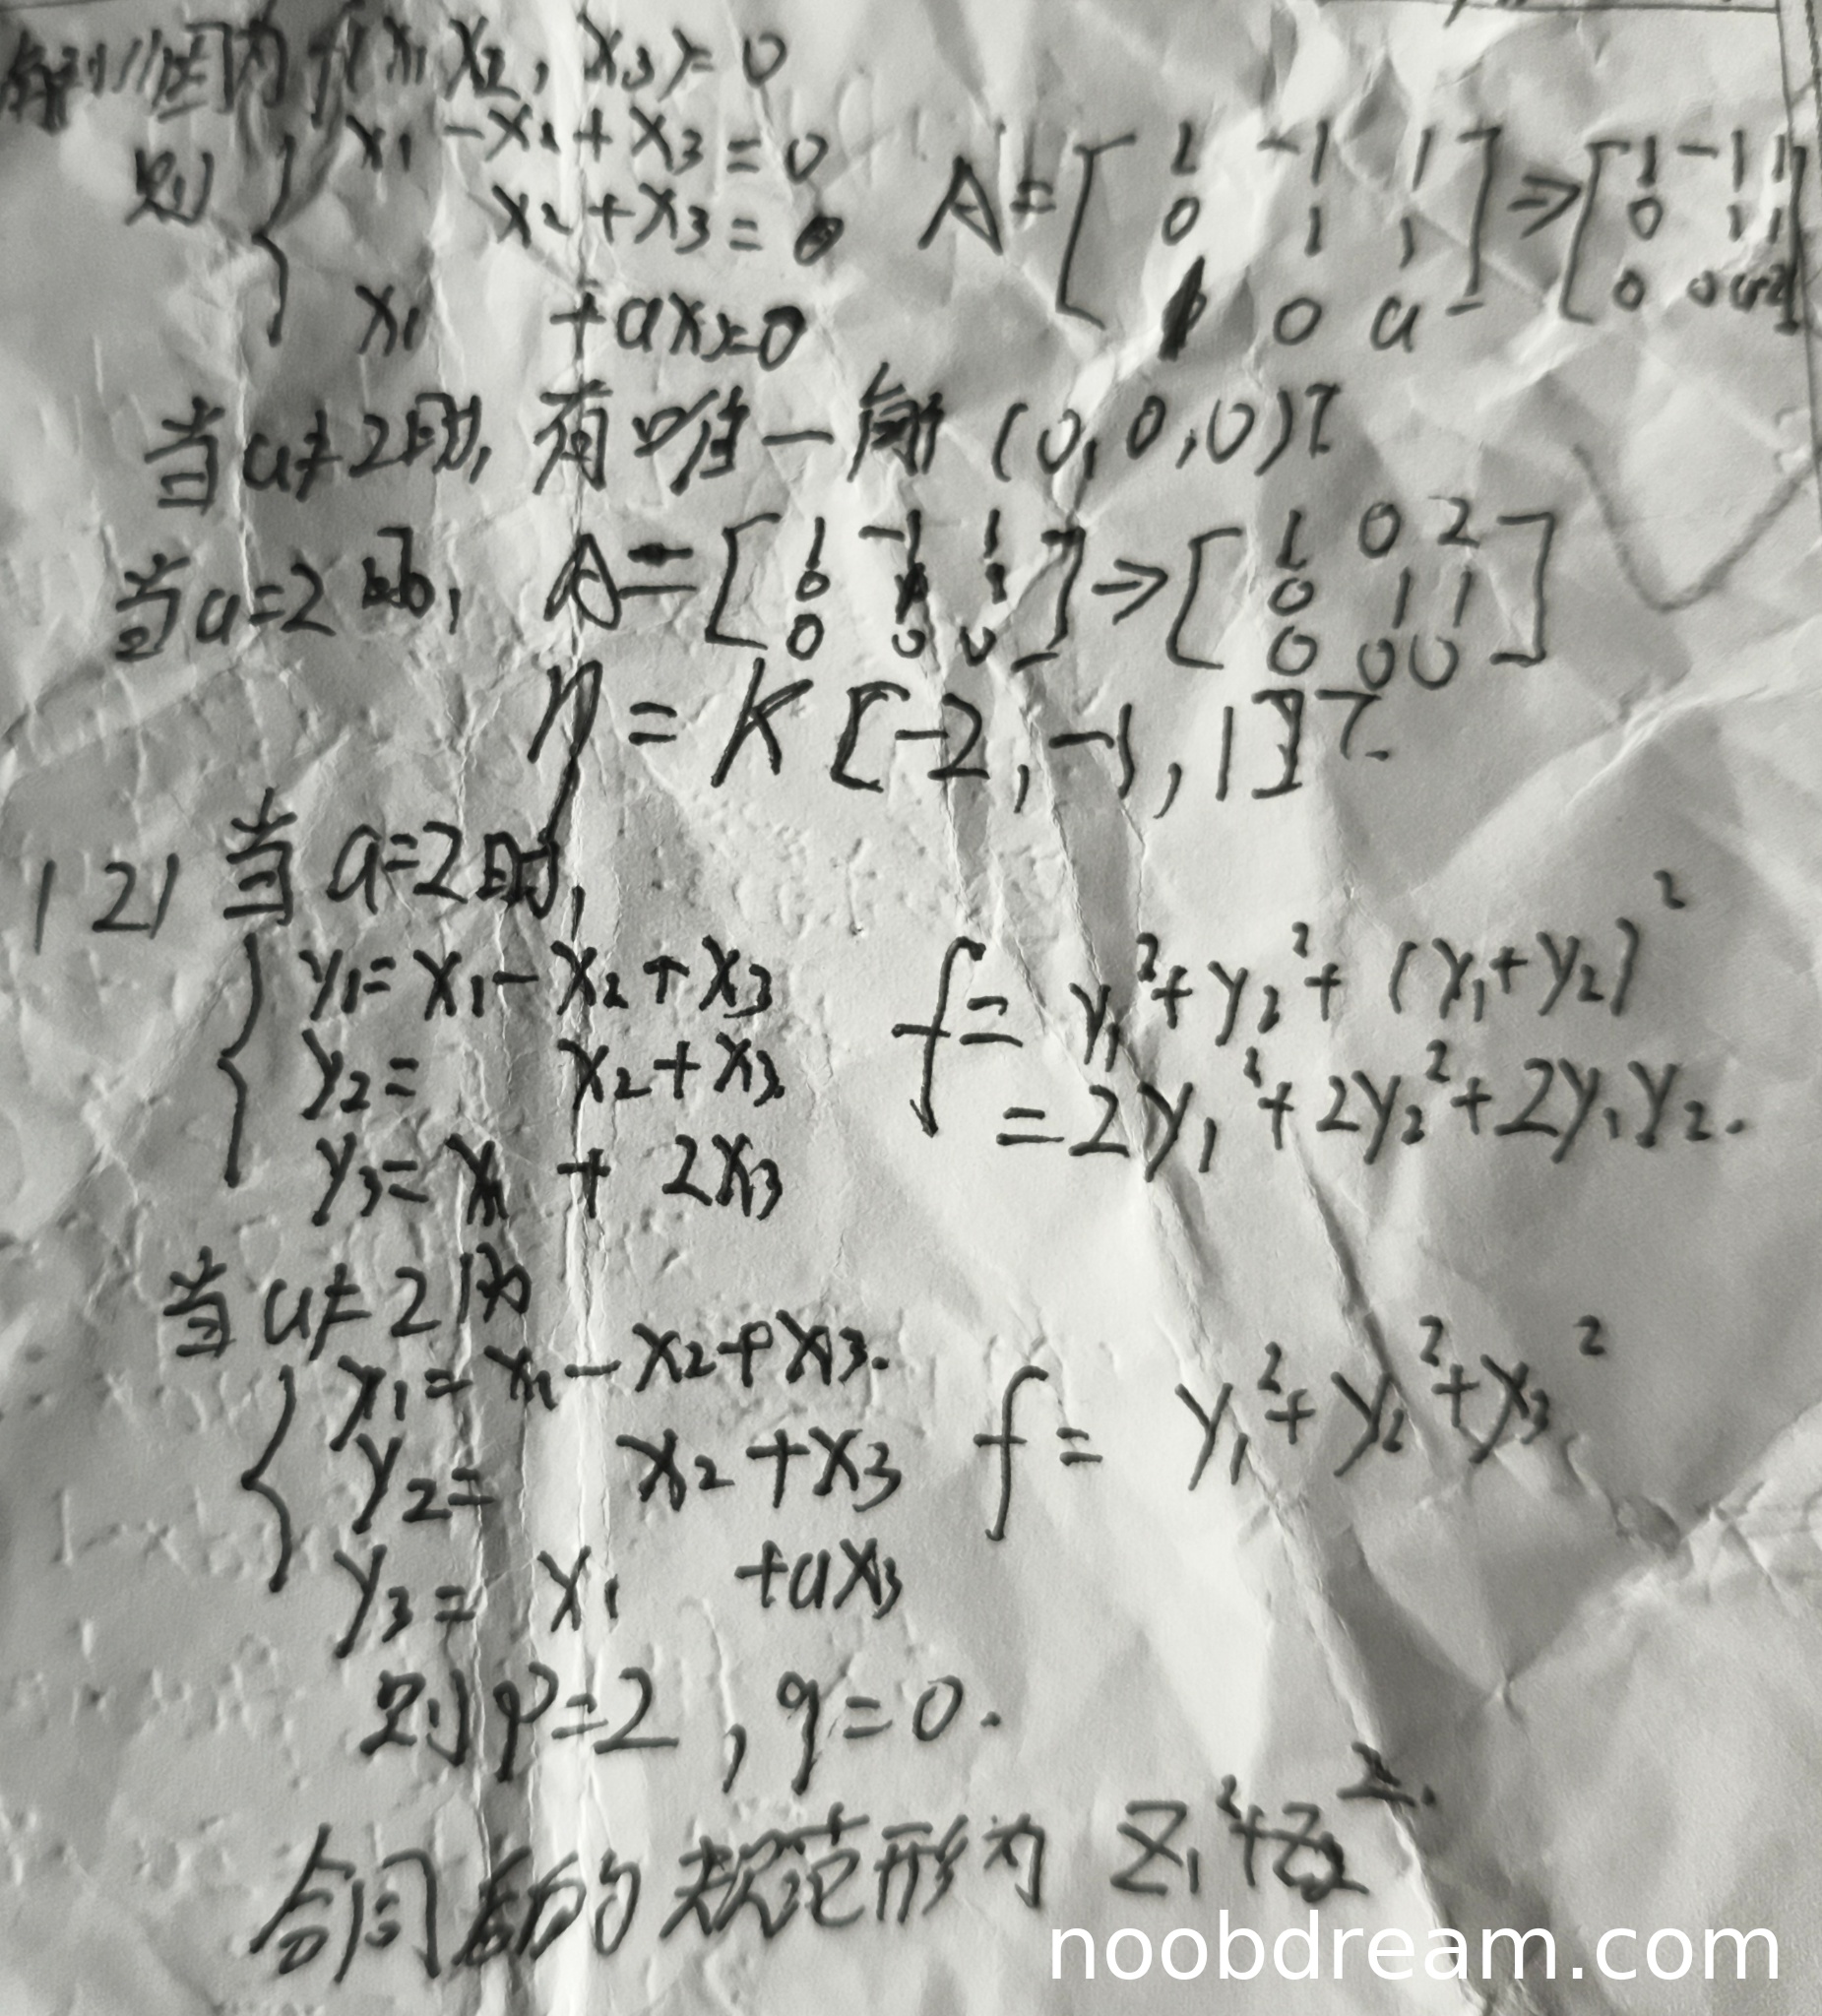 解:(1)因为 f(x₁ x₂, x₃)=0
则 { x₁ -x₂ + x₃ = 0
x₂ + x₃ = 0
x₁ + ax₃=0
A = [ 1 -1 1
0 1 1
1 0 a ] ⇒ [ 1 -1 1
0 1 1
0 0 a-2 ]
当a≠2时, 有唯一解 (0,0,0)T
当a=2时, A = [ 1 -1 1
0 1 1
0 0 0 ] → [ 1 0 2
0 1 1
0 0 0 ]
η = K [-2, -1, 1]T.
(2) 当 a=2时,
{ y₁= x₁ - x₂ + x₃
y₂= x₂+x₃
y₃= x₁ + 2x₃
f= y₁²+y₂²+ (y₁+y₂)²
=2y₁²+2y₂²+2y₁y₂.
当 a≠2时
{ y₁= x₁ - x₂+x₃.
y₂= x₂+x₃
y₃= x₁ +ax₃
f= y₁²+y₂²+y₃²
则 p=2, q=0.
合同 的规范形为 Z₁²+Z₂².
noobdream.com